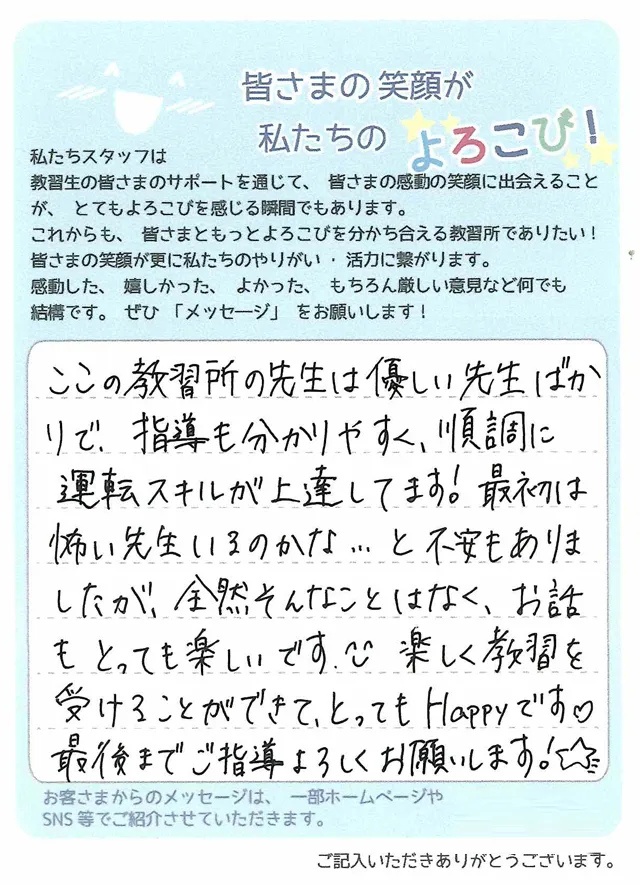 皆さまの笑顔が
私たちの よろこび!
私たちスタッフは
教習生の皆さまのサポートを通じて、 皆さまの感動の笑顔に出会えること
が、 とてもよろこびを感じる瞬間でもあります。
これからも、 皆さまともっとよろこびを分かち合える教習所でありたい!
皆さまの笑顔が更に私たちのやりがい・活力に繋がります。
感動した、 嬉しかった、 よかった、 もちろん厳しい意見など何でも
結構です。 ぜひ 「メッセージ」 をお願いします!
ここの教習所の先生は優しい先生ばか
りで、指導も分かりやすく、順調に
運転スキルが上達してます!最初は
怖い先生いるのかな...と不安もありま
したが、全然そんなことはなく、お話
もとっても楽しいです.☺ 楽しく教習を
受けることができて、とってもHappyです♡
最後までご指導よろしくお願いします!☆
お客さまからのメッセージは、 一部ホームページや
SNS等でご紹介させていただきます。
ご記入いただきありがとうございます。